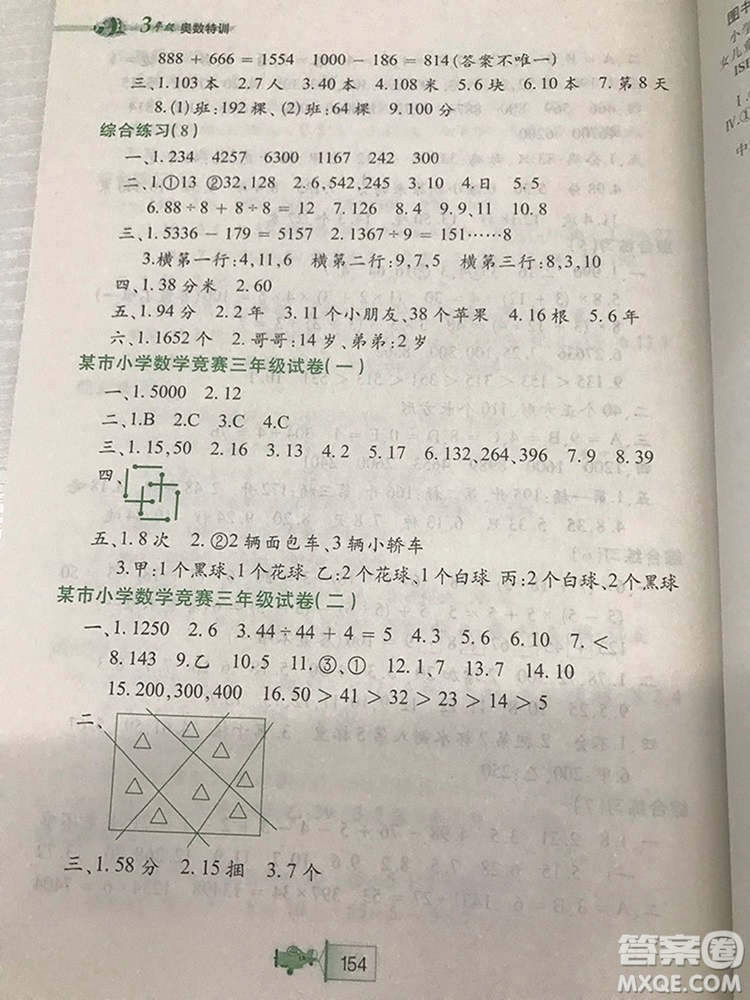 3年级 奥数特训
888 + 666 = 1554  1000 - 186 = 814(答案不唯一)
三、1.103本  2.7人  3.40本  4.108米  5.6块  6.10本  7.第8天
8.(1)班:192棵、(2)班:64棵  9.100分
综合练习(8)
一、1.234  4257  6300  1167  242  300
二、1.①13  ②32,128  2.6,542,245  3.日  4.日  5.5
6.88÷8+8÷8=12  7.126  8.4  9.9、11  10.8
三、1.5336-179=5157  2.1367÷9=151……8
3.横第一行:4,11,6  横第二行:9,7,5  横第三行:8,3,10
四、1.38  2.60
五、1.94分  2.2年  3.11个小朋友,38个苹果  4.16根  5.6年
六、1.1652个  2.哥哥:14岁、弟弟:2岁
某市小学数学竞赛三年级试卷(一)
一、1.5000  2.12
二、1.B  2.C  3.C  4.C
三、1.15,50  2.16  3.13  4.2  5.17  6.132,264,396  7.9  8.39
四、
五、1.8次  2.②2辆面包车、3辆小轿车
3.甲:1个黑球、1个花球  乙:2个花球、1个白球  丙:2个白球、2个黑球
某市小学数学竞赛三年级试卷(二)
一、1.1250  2.6  3.44÷44+4=5  4.3  5.6  6.10  7.<
8.143  9.乙  10.5  11.③、①  12.1,7  13.7  14.10
15.200,300,400  16.50>41>32>23>14>5
二、
三、1.58分  2.15捆  3.7个
154
图书
小学
女儿童
ISB
Ⅳ.①
中
答案圈
MXQE.COM